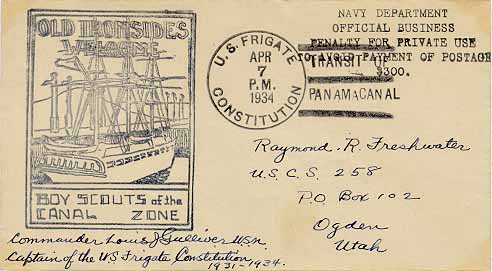 OLD IRONSIDES
WELCOME
BOY SCOUTS of the
CANAL ZONE
U.S. FRIGATE
APR
7
P.M.
1934
CONSTITUTION
NAVY DEPARTMENT
OFFICIAL BUSINESS
PENALTY FOR PRIVATE USE
TO AVOID PAYMENT OF POSTAGE
$300.
TRANSIT
PANAMA CANAL
Raymond R. Freshwater
U.S.C.S. 258
P.O. Box 102
Ogden
Utah
Commander Louis J Gulliver USN.
Captain of the US Frigate Constitution
1931-1934.